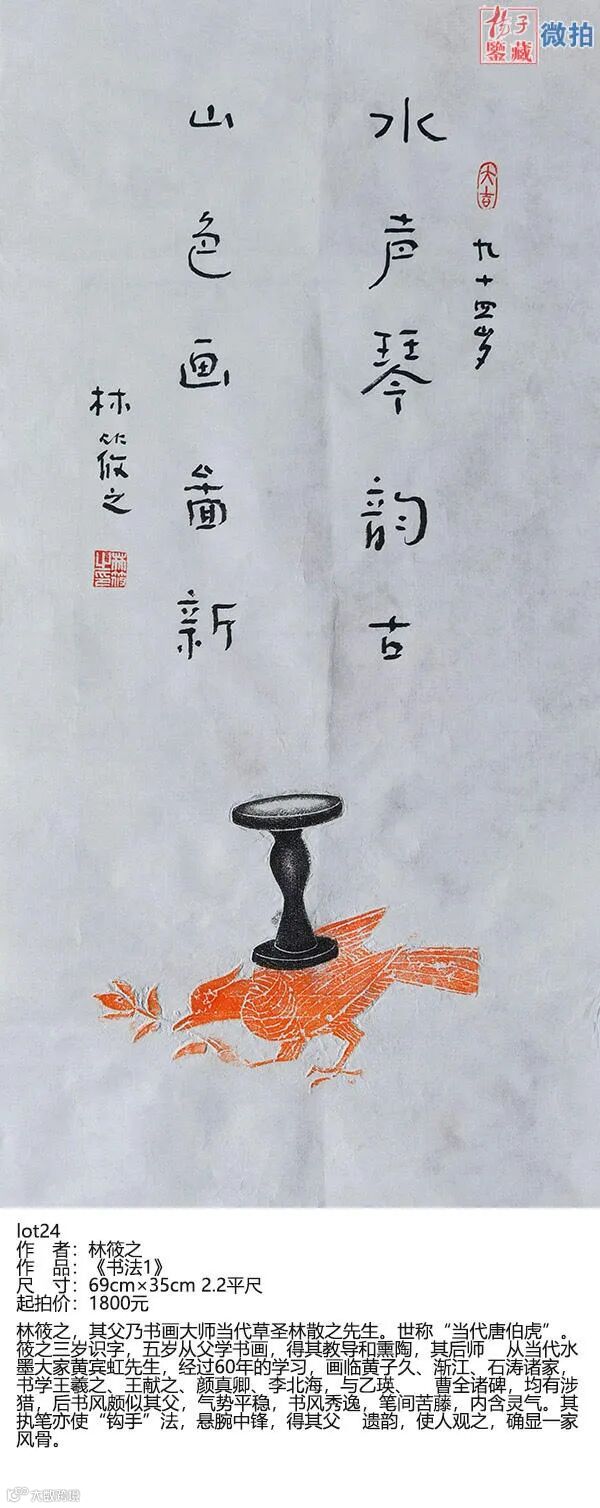 杨子鉴藏 微拍
大吉
九十四岁
水声琴韵古
山色画图新
林筱之
林筱之印
lot24
作 者：林筱之
作 品：《书法1》
尺 寸：69cm×35cm 2.2平尺
起拍价：1800元
林筱之，其父乃书画大师当代草圣林散之先生。世称“当代唐伯虎”。
筱之三岁识字，五岁从父学书画，得其教导和熏陶，其后师 从当代水
墨大家黄宾虹先生，经过60年的学习，画临黄子久、渐江、石涛诸家，
书学王羲之、王献之、颜真卿、李北海，与乙瑛、 曹全诸碑，均有涉
猎，后书风颇似其父，气势平稳，书风秀逸，笔间苦藤，内含灵气。其
执笔亦使“钩手”法，悬腕中锋，得其父 遗韵，使人观之，确显一家
风骨。
大数跨境